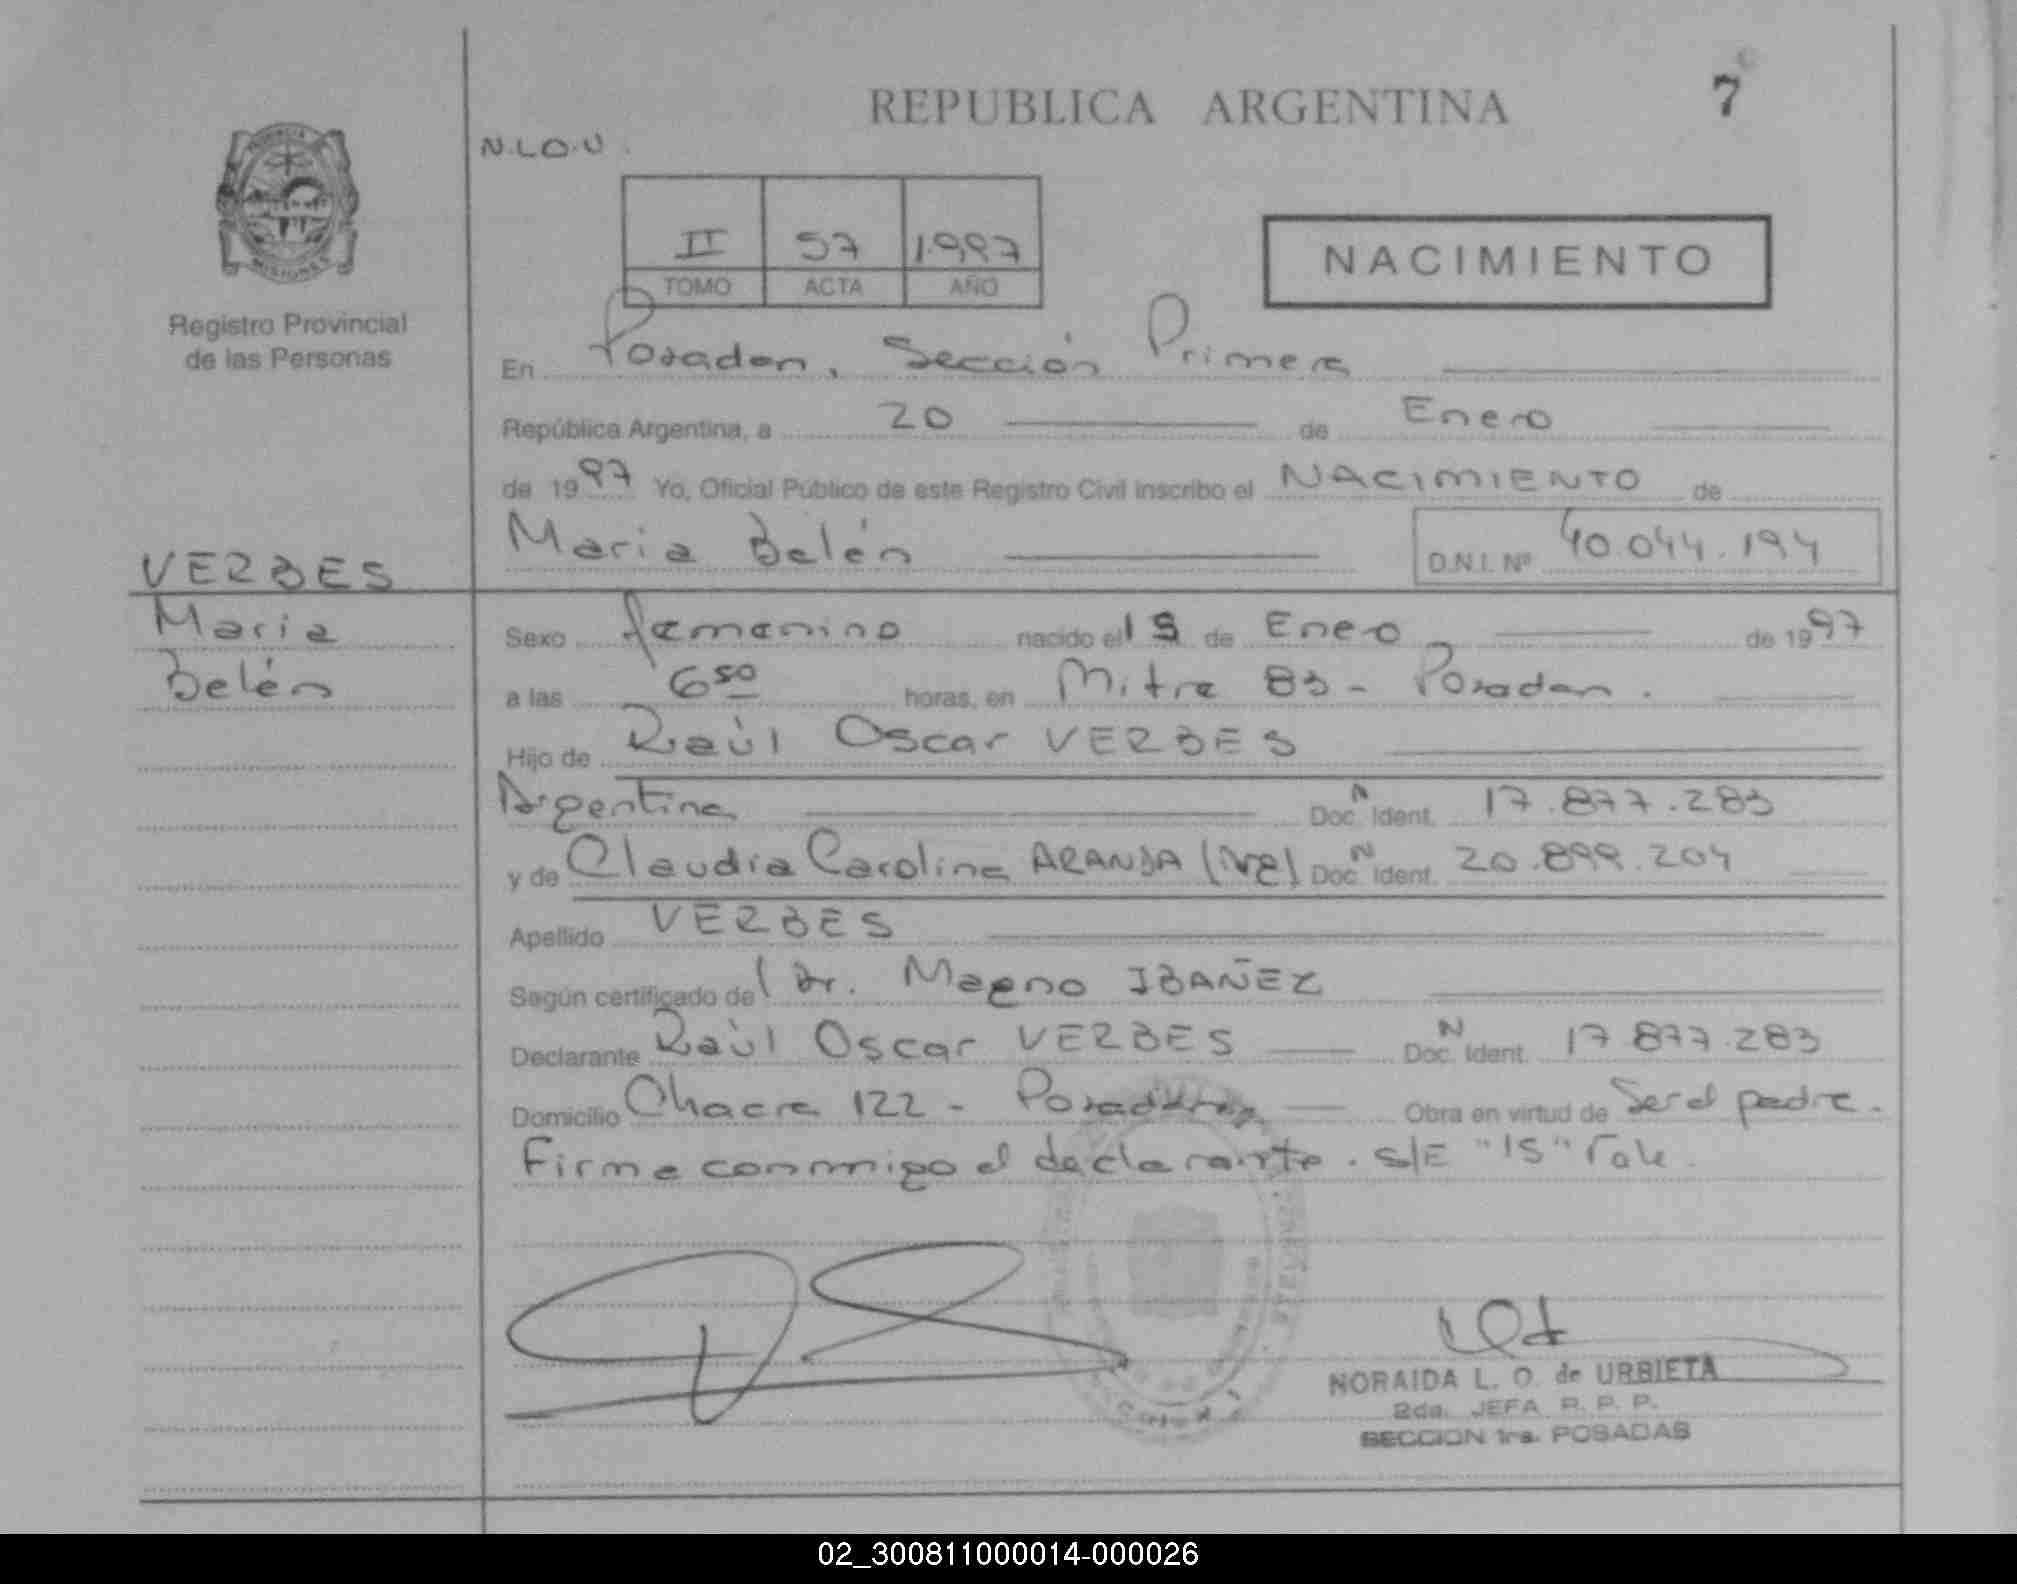 REPUBLICA ARGENTINA
7
N.L.O.U.
II 57 1.997
TOMO ACTA AÑO
NACIMIENTO
PROVINCIA
MISIONES
Registro Provincial
de las Personas
En Posadas, Sección Primera
República Argentina, a 20 de Enero
de 1997 Yo, Oficial Público de este Registro Civil inscribo el NACIMIENTO de
Maria Belén D.N.I. Nº 40.044.194
VERBES
Maria
Belén
Sexo femenino nacido el 15 de Enero de 1997
a las 6 50 horas, en Mitre 83 - Posadas.
Hijo de Raúl Oscar VERBES
Argentina Doc. N Ident. 17.877.283
y de Claudia Carolina ARANDA Doc. N Ident. 20.899.204
Apellido VERBES
Según certificado del Dr. Magno IBAÑEZ
Declarante Raúl Oscar VERBES Doc. N Ident. 17.877.283
Domicilio Chacra 122 - Posadas Obra en virtud de Ser el padre.
Firma conmigo el declarante. s/E "15" Vale.
NORAIDA L. O. de URBIETA
2da. JEFA R. P. P.
SECCION 1ra. POSADAS
02_300811000014-000026